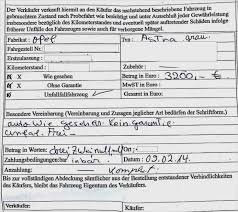 Der Verkäufer verkauft hiermit an den Käufer das nachstehend beschriebene Fahrzeug in
gebrauchtem Zustand nach Probefahrt, wie besichtigt und unter Ausschluß jeder Gewährleistung
insbesondere bezüglich des Kilometerstandes und eventuell später auftretender Schäden infolge
früherer Unfälle des Fahrzeuges sowie auch für verborgene Mängel.
Fabrikat: Opel Typ: Astra grau
Fahrgestell Nr.:
Erstzulassung:
Kilometerstand: Zubehör:
Wie gesehen Betrag in Euro: 3200,- €
Ohne Garantie MwST in Euro:
Unfallfreifahrzeug Gesamt in Euro:
Besondere Vereinbarung (Vereinbarung und Zusagen jeglicher Art bedürfen der Schriftform.)
auto Wie gesehen kein garantie.
unfal. Frei
Betrag in Worten: drei zwei null null
Zahlungsbedingungen: in bar. Datum: 03.02.14.
Anzahlung: komplet
Bis zur vollständigen Abdeckung sämtlicher aus der Bestellung entstandener Verbindlichkeiten
des Käufers, bleibt das Fahrzeug Eigentum des Verkäufers.